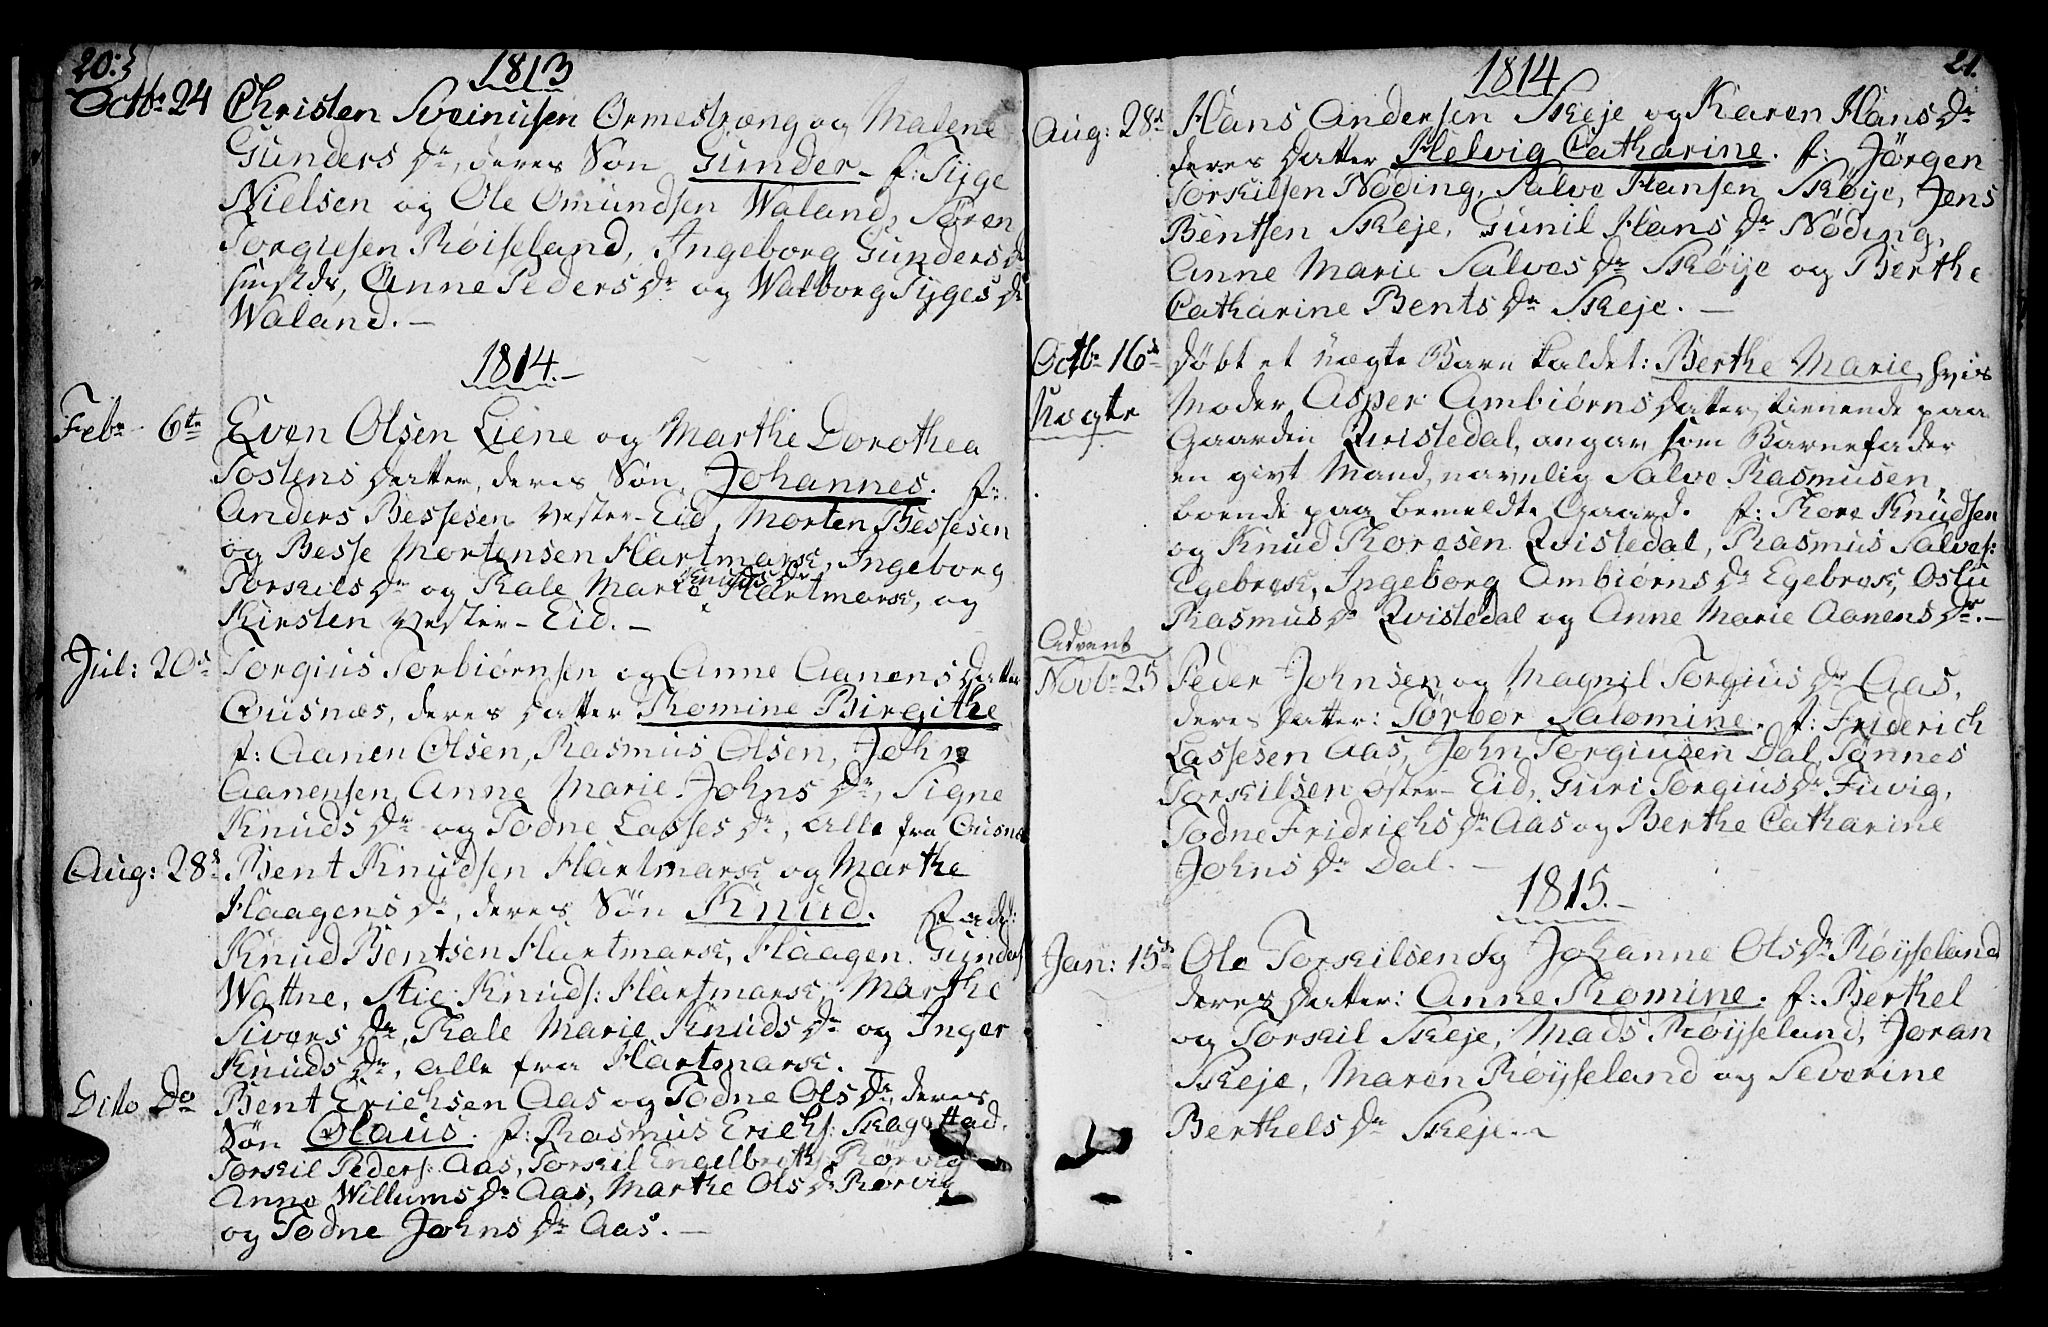 20.
1813
Octbr 24 Christen Sveinusen Ormestræng og Malene
Gunders Dr, deres Søn Gunder. f: Tÿge
Nielsen og Ole Omundsen Waland, Søren
Torgiusen Røisseland, Ingeborg Gunders Dr
Anne Peders Dr og Walborg Tÿges Dr
Waland. —
1814. —
Febr 6te Even Olsen Liene og Marthe Dorothea
Tostens Datter, deres Søn Johannes. f:
Anders Bessesen Vester-Eid, Morten Bessesen
og Besse Mortensen Hartmark, Ingeborg
Torskils Dr og Thale Marie Knuds Dr Hartmark, og
Kirsten Vester-Eid. —
Jul: 20d Torgius Torbiørnsen og Anne Aanens Datter
Ousnæs, deres Datter Thomine Birgithe
f: Aanen Olsen, Rasmus Olsen, John
Aanensen, Anne Marie Johns Dr, Signe
Knuds Dr og Todne Lasses Dr, alle fra Ousnæs
Aug: 28d Bent Knudsen Hartmark og Marthe
Haagens Dr, deres Søn Knud. fadd:
Knud Bentsen Hartmark, Haagen Gunders:
Wattne, Stie Knuds: Hartmark, Marthe
Sivers Dr, Thale Marie Knuds Dr og Inger
Knuds Dr, alle fra Hartmark. —
Dito Do Bent Erichsen Aas og Todne Ols Dr, deres
Søn Olaus. f: Rasmus Erichs: Skagestad,
Torskil Peders: Aas, Torskil Engelbreths: Rørvig
Anne Willums Dr Aas, Marthe Ols Dr Rørvig
og Todne Johns Dr Aas. —
21.
1814
Aug: 28d Hans Andersen Skeje og Karen Hans Dr
deres Datter Helvig Catharine. f: Jörgen
Torskilsen Nøding, Salve Hansen Skøije, Jens
Bentsen Skeje, Gunil Hans Dr Nøding,
Anne Marie Salves Dr Skøije og Berthe
Catharine Bents Dr Skeje. —
Octbr 16d døbt et Uægte Barn kaldet: Berthe Marie, hvis
Uægte Moder Asper Ambiørns Datter, tienende paa
Gaarden Qvistedal, angav som Barnefader
en givt Mand, navnlig Salve Rasmusen,
boende paa bemeldte Gaard. f: Thore Knudsen
og Knud Thoresen Qvistedal, Rasmus Salves:
Egebrok, Ingeborg Ambiørns Dr Egebrok, Oslu
Rasmus Dr Qvistedal og Anne Marie Aanens Dr. —
Advent
Novbr 25 Peder Johnsen og Magnil Torgius Dr Aas,
deres Datter: Torbor Salomine. f: Friderich
Lassesen Aas, John Torgiusen Dal, Tønnes
Torskilsen Øster-Eid, Guri Torgius Dr Fuvig,
Todne Fridrichs Dr Aas og Berthe Catharine
Johns Dr Dal. —
1815. —
Jan: 15d Ole Torskilsen og Johanne Ols Dr Røijseland
deres Datter: Anne Thomine. f: Berthel
og Torskil Skeje, Mads Røijseland, Joran
Skeje, Maren Røijseland og Severine
Berthels Dr Skeje. —